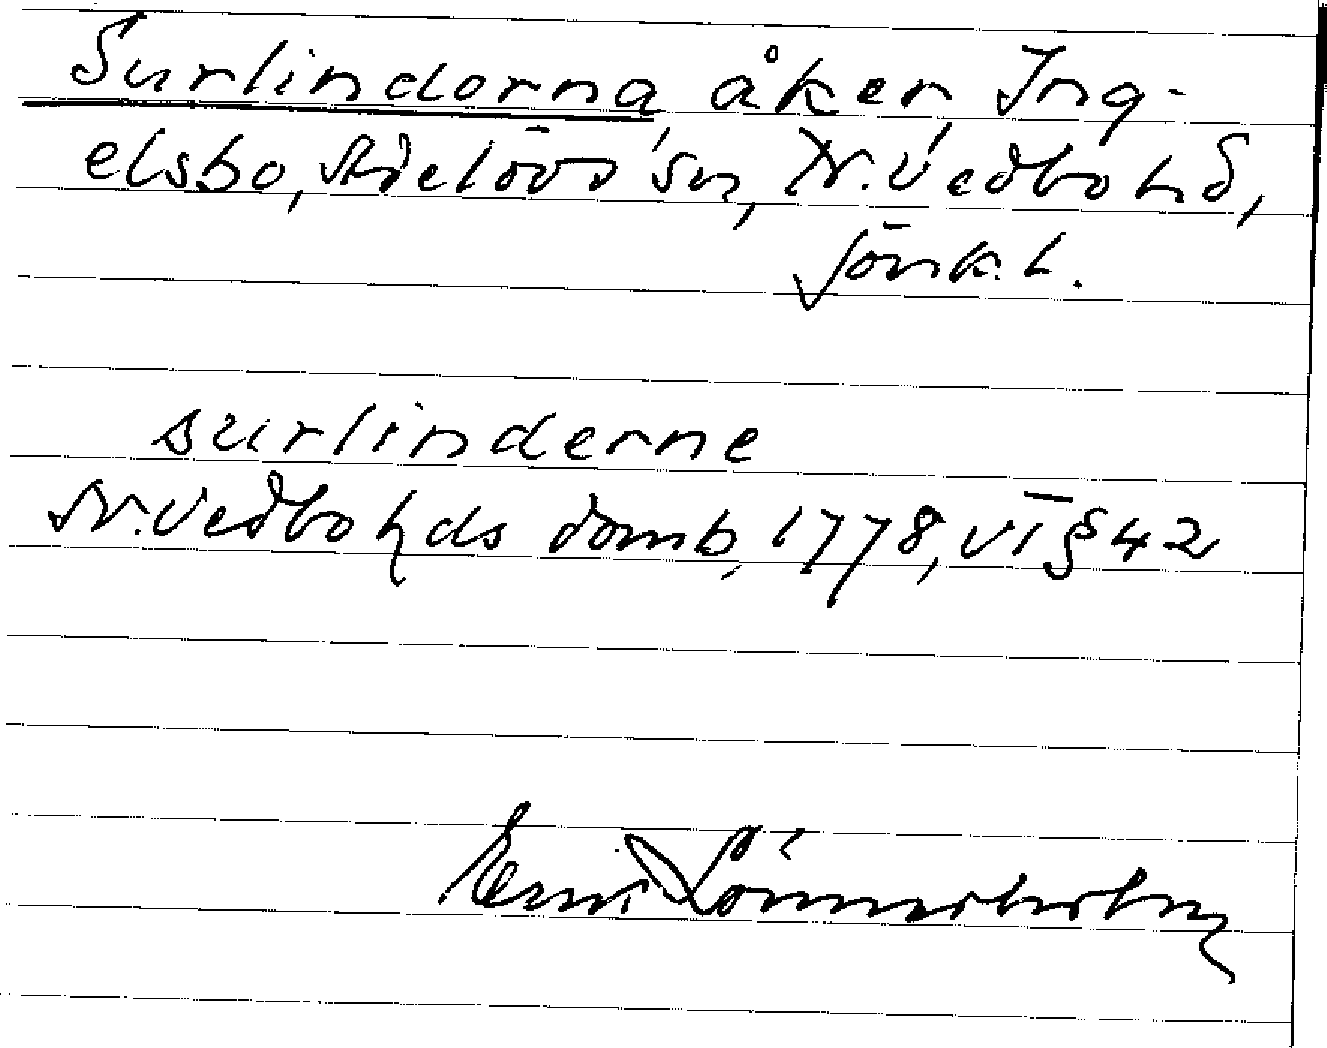 Surlindorna åker Ing-
elsbo, Adelövs sn, N. Vedbo hd,
Jönk. l.
surlinderne
N. Vedbo hds domb, 1778, VI § 42
Erni Lönnerholm